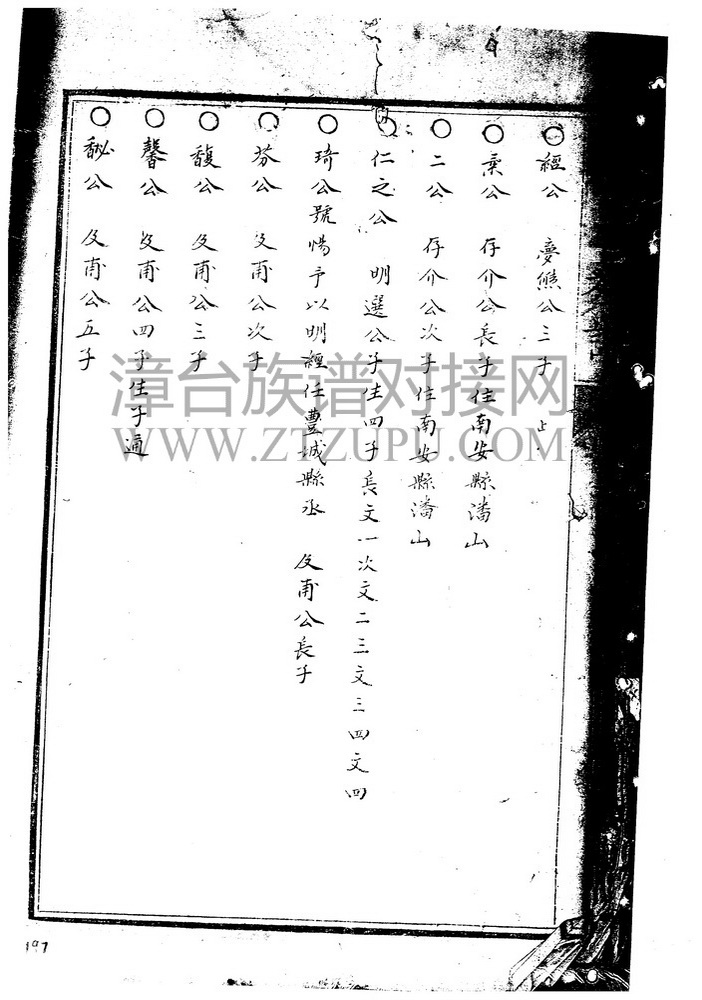 ○經公 夢熊公三子 上
○秉公 存介公長子住南安縣潘山
○二公 存介公次子住南安縣潘山
○仁之公 明選公子生四子長文一次文二三文三四文四
○琦公號惕予以明經任豐城縣丞 及甫公長子
○芬公 及甫公次子
○馥公 及甫公三子
○馨公 及甫公四子生子通
○馝公 及甫公五子
漳台族谱对接网
WWW.ZTZUPU.COM
197